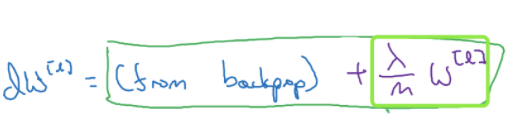 dW^[l] = (from backprop) + λ/m W^[l]